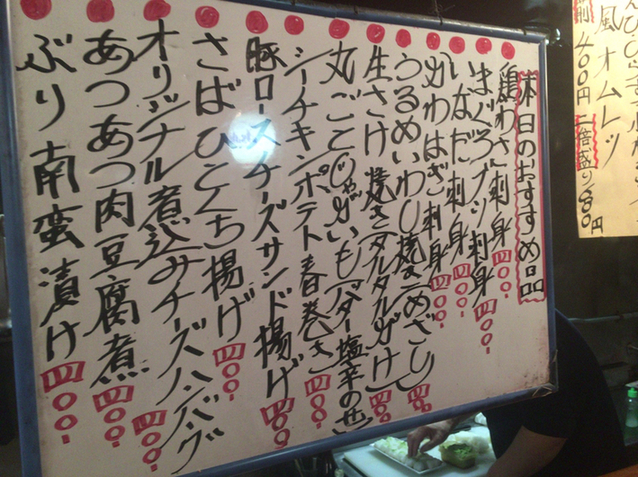 本日のおすすめ品
鶏わさ刺身 四〇〇-
まぐろブツ刺身 四〇〇-
いなだ刺身 四〇〇-
かわはぎ刺身 四〇〇-
うるめいわし焼き(めざし) 四〇〇-
生さけ焼き(タルタルがけ) 四〇〇-
丸ごとじゃがいもバター塩辛のせ
シーチキンポテト春巻き 四〇〇-
豚ロースチーズサンド揚げ 四〇〇-
さばひとくち揚げ 四〇〇-
オリジナル煮込みチーズハンバーグ 四〇〇-
あつあつ肉豆腐煮 四〇〇-
ぶり南蛮漬け 四〇〇-
風オムレツ
400円